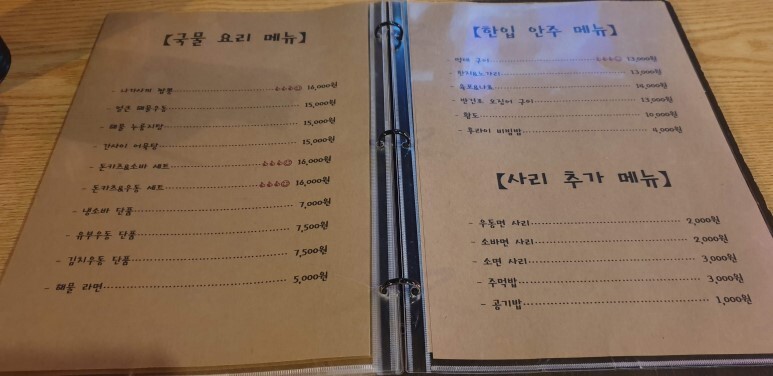 【국물 요리 메뉴】
- 나가사끼 짬뽕 16,000원
- 얼큰 해물우동 15,000원
- 해물 누룽지탕 15,000원
- 간사이 어묵탕 15,000원
- 돈카츠&소바 세트 16,000원
- 돈카츠&우동 세트 16,000원
- 냉소바 단품 7,000원
- 유부우동 단품 7,500원
- 김치우동 단품 7,500원
- 해물 라면 5,000원
【한입 안주 메뉴】
- 먹태 구이 13,000원
- 한치&노가리 13,000원
- 육포&나쵸
- 반건조 오징어 구이 13,000원
- 황도 10,000원
- 후라이 비빔밥
【사리 추가 메뉴】
- 우동면 사리 2,000원
- 소바면 사리 2,000원
- 소면 사리 3,000원
- 주먹밥 3,000원
- 공기밥 1,000원